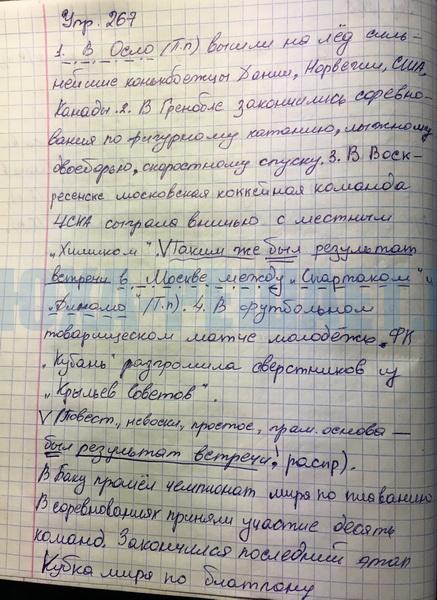 Упр. 267
1. В Осло (П.п) вышли на лёд силь-
нейшие конькобежцы Дании, Норвегии, США,
Канады. 2. В Гренобле закончились соревно-
вания по фигурному катанию, лыжному
двоеборью, скоростному спуску. 3. В Воск-
ресенске московская хоккейная команда
ЦСКА сыграла вничью с местным
„Химиком". V Таким же был результат
встречи в Москве между „Спартаком" и
„Динамо" (П.п). 4. В футбольном
товарищеском матче молодёжь ФК
„Кубань" разгромила сверстников из
„Крыльев Советов".
V (Повест., невоскл, простое, грам. основа —
был результат встречи, распр).
В Баку прошёл чемпионат мира по плаванию
В соревнованиях приняли участие десять
команд. Закончился последний этап
Кубка мира по биатлону